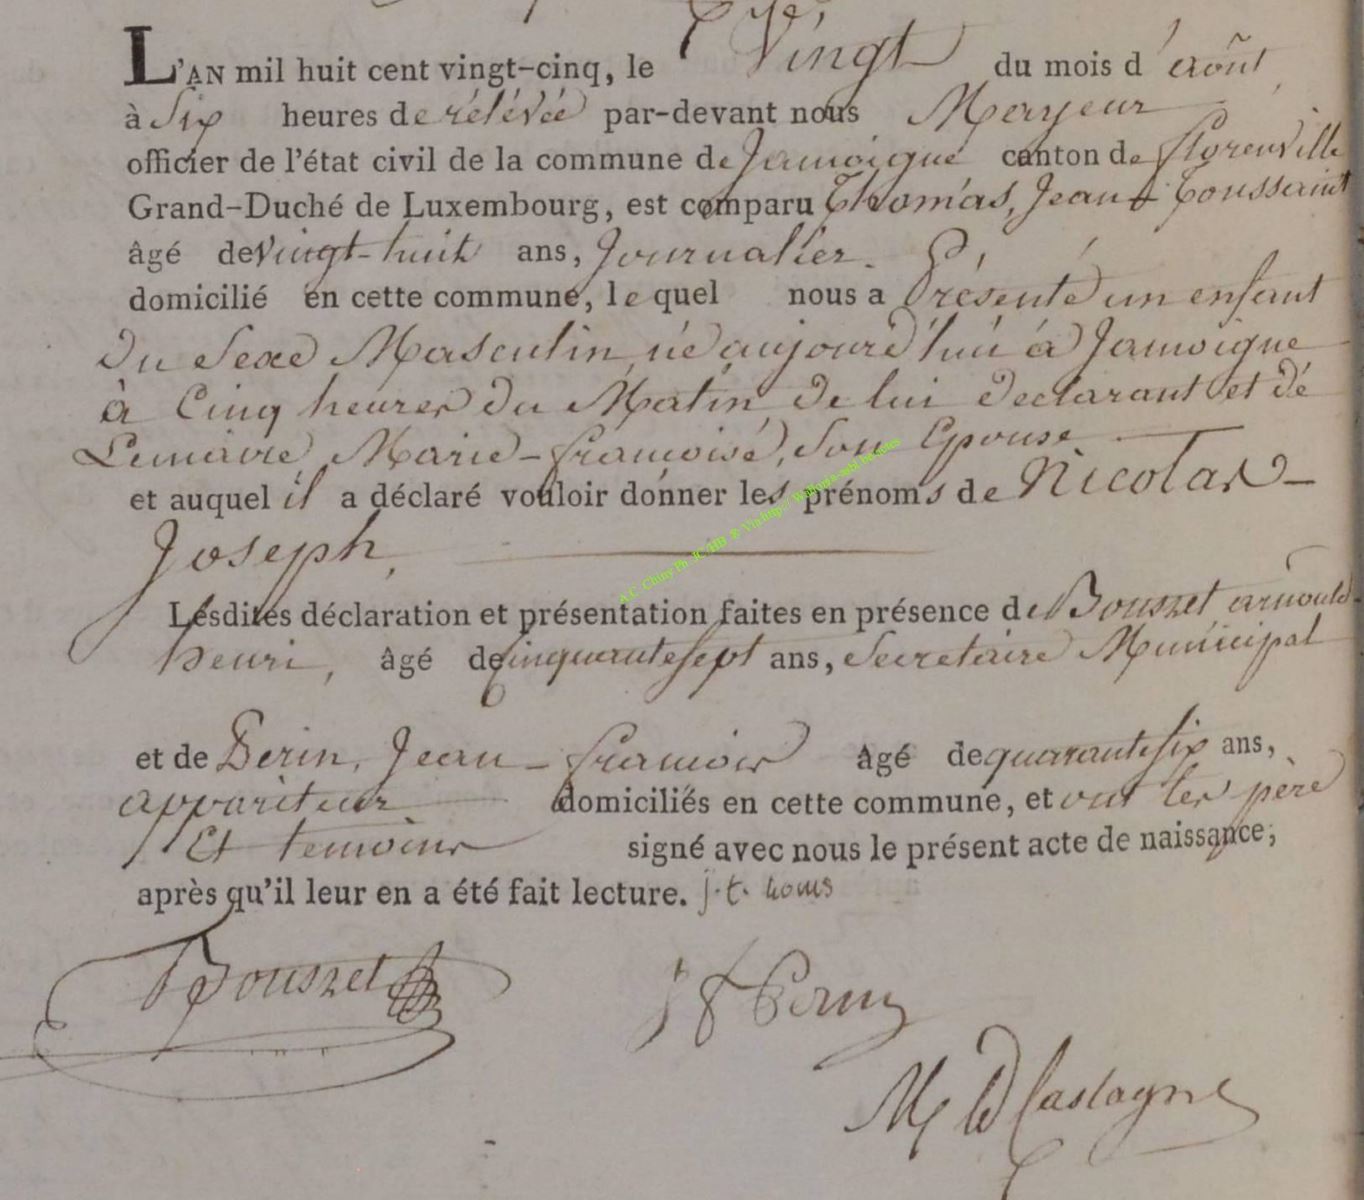 L'AN mil huit cent vingt-cinq, le Vingt du mois d'août
à Six heures de rélévée par-devant nous Mayeur
officier de l'état civil de la commune de Jamoigne canton de florenville
Grand-Duché de Luxembourg, est comparu Thomas, Jean-Toussaint
âgé de vingt-huit ans, Journalier.
domicilié en cette commune, le quel nous a Présenté un enfant
Du Sexe Masculin né aujourd'hui à Jamoigne
à Cinq heures du Matin de lui declarant et dé
Lemaire, Marie-françoisé, Son Epouse
et auquel il a déclaré vouloir donner les prénoms de Nicolas-
Joseph,
Lesdites déclaration et présentation faites en présence de Bouszet arnould
henri, âgé de cinquante sept ans, Secretaire Municipal
et de Perin, Jean-françois âgé de quarante six ans,
appariteur domiciliés en cette commune, et ont les père
Et temoins signé avec nous le présent acte de naissance,
après qu'il leur en a été fait lecture. j. t. homs
Bouszet J f Perin
Castagne